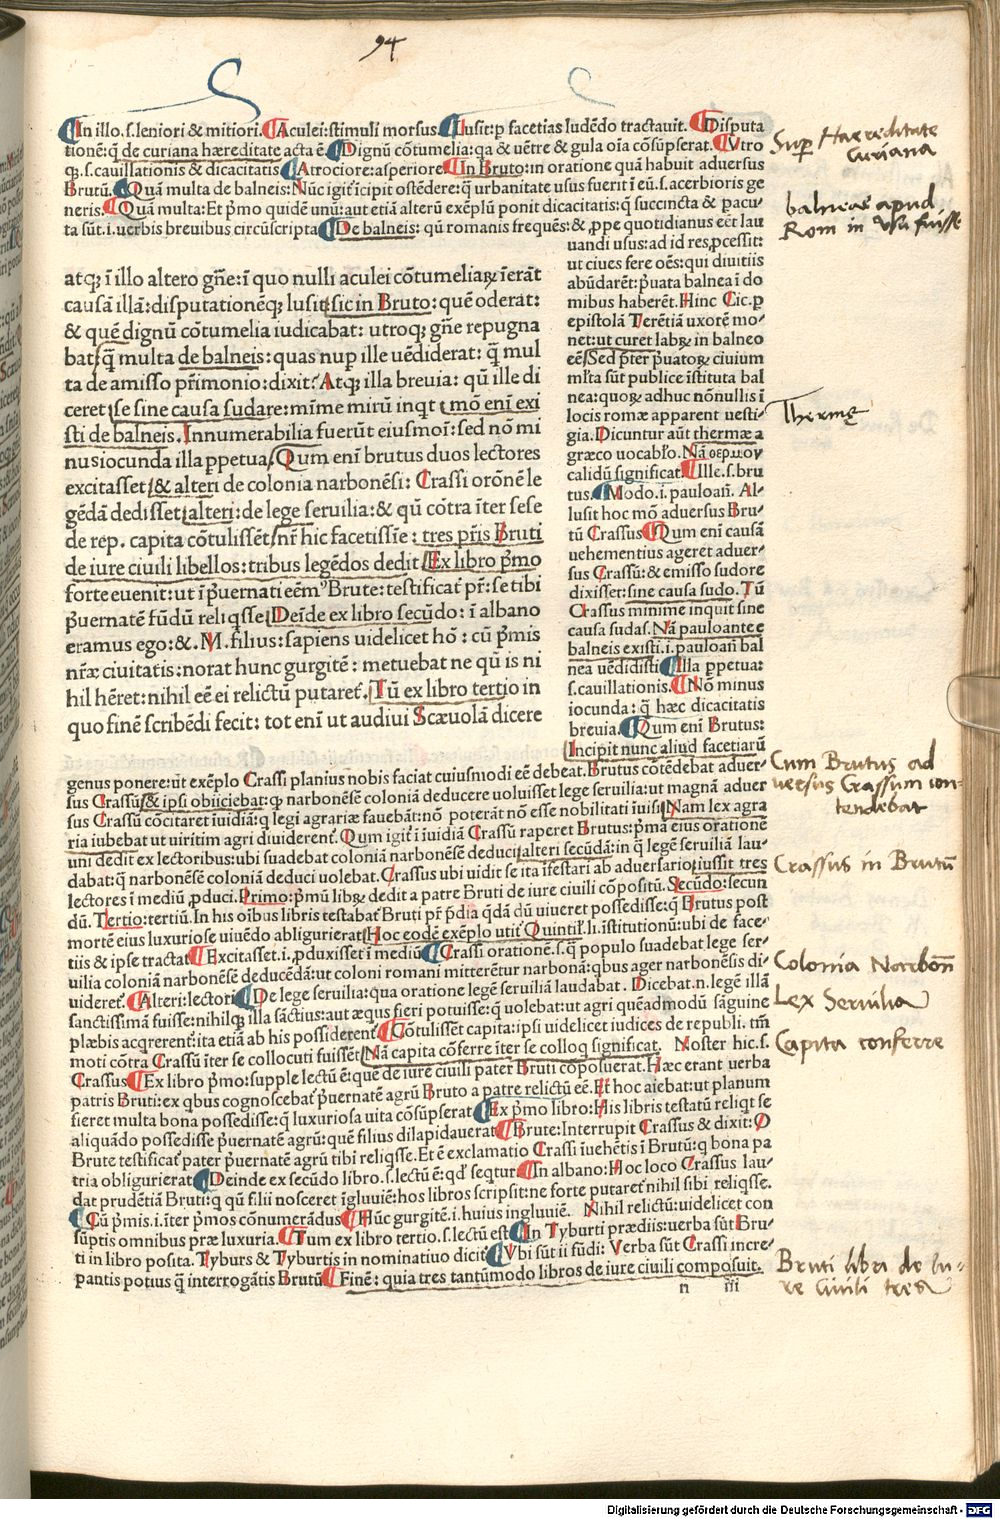 94
In illo.s.leniori & mitiori. Aculei:stimuli morsus. Lusit:p facetias ludēdo tractauit. Disputa
tionē:q̄ de curiana hæreditate acta ē. Dignū cōtumelia:qa & uētre & gula oīa cōsūpserat. Vtro
qꝫ.s.cauillationis & dicacitatis Atrociore:asperiore. In Bruto:in oratione quā habuit aduersus
Brutū. Quā multa de balneis: Nūc igit̄ īcipit ostēdere:q̄ urbanitate usus fuerit ī eū.s.acerbioris ge
neris. Quā multa: Et p̄mo quidē unū: aut etiā alterū exēplū ponit dicacitatis: q̄ succincta & pacu-
ta sūt.i.uerbis breuibus circūscripta De balneis: qū romanis frequēs: & ꝓpe quotidianus eēt lau
uandi usus:ad id res,ꝓcessit:
ut ciues fere oēs:qui diuitiis
abūdarēt:p̄uata balnea ī do
mibus haberēt. Hinc Cic.p
epistolā Terētiā uxorē mo-
net:ut curet labꝝ in balneo
eē Sed p̄ter p̄uatoꝝ ciuium
ml̄ta sūt publice īstituta bal
nea:quoꝝ adhuc nōnullis ī
locis romæ apparent uesti-
gia. Dicuntur aūt thermæ a
græco uocabl̄o. Nā θερμον
calidū significat. Ille.s.bru
tus. Modo.i.pauloañ. Al-
lusit hoc mō aduersus Bru-
tū Crassus Qum enī causā
uehementius ageret aduer-
sus Crassū:& emisso sudore
dixisset:sine causa sudo. Tū
Crassus minime inquit sine
causa sudas. Nā pauloante e
balneis existi.i.pauloañ bal
nea uēdidisti Illa ppetua:
s.cauillationis. Nō minus
iocunda: q̄ hæc dicacitatis
breuia. Qum enī Brutus:
Incipit nunc aliud facetiarū
atqꝫ ī illo altero gn̄e:ī quo nulli aculei cōtumeliaꝝ īerāt
causā illā:disputationēqꝫ lusit sic in Bruto:quē oderat:
& quē dignū cōtumelia iudicabat: utroqꝫ gn̄e repugna
bat q̄ multa de balneis: quas nup ille uēdiderat: q̄ mul
ta de amisso pr̄imonio:dixit. Atqꝫ illa breuia: qū ille di
ceret se sine causa sudare:mīme mirū inqt mō enī exi
sti de balneis. Innumerabilia fuerūt eiusmoī:sed nō mi
nusiocunda illa ppetua. Qum enī brutus duos lectores
excitasset & alteri de colonia narbonēsi: Crassi orōnē le
gēdā dedisset alteri:de lege seruilia:& qū cōtra īter sese
de rep. capita cōtulissēt nr̄ hic facetissīe: tres pr̄is Bruti
de iure ciuili libellos:tribus legēdos dedit Ex libro p̄mo
forte euenit: ut ī p̄uernati eēm⁹ Brute: testificat̄ pr̄:se tibi
p̄uernatē fūdū reliqsse Deīde ex libro secūdo: ī albano
eramus ego:&.M.filius: sapiens uidelicet hō: cū p̄mis
nr̄æ ciuitatis: norat hunc gurgitē: metuebat ne qū is ni
hil hēret:nihil eē ei relictū putaret̄. Tū ex libro tertio in
quo finē scribēdi fecit: tot enī ut audiui Scæuolā dicere
genus ponere:ut exēplo Crassi planius nobis faciat cuiusmodi eē debeat. Brutus cōtēdebat aduer-
sus Crassū & ipsi obiiciebat:qꝫ narbonēsē coloniā deducere uoluisset lege seruilia:ut magnā aduer
sus Crassū cōcitaret īuidiā:q legi agrariæ fauebāt:nō poterāt nō esse nobilitati īuisi Nam lex agra
ria iubebat ut uiritim agri diuiderent̄. Qum igit̄ ī īuidiā Crassū raperet Brutus:p̄mā eius orationē
uni dedit ex lectoribus:ubi suadebat coloniā narbonēsē deduci alteri secūdā:in q̄ legē seruiliā lau-
dabat:q̄ narbonēsē coloniā deduci uolebat. Crassus ubi uidit se ita īfestari ab aduersario iussit tres
lectores ī mediū ꝓduci. Primo:p̄mū libꝝ dedit a patre Bruti de iure ciuili cōpositū. Secūdo:secun
dū. Tertio:tertiū. In his oībus libris testabat̄ Bruti pr̄ p̄dia qdā dū uiueret possedisse:q̄ Brutus post
mortē eius luxuriose uiuēdo abligurierat Hoc eodē exēplo utit̄ Quintil̄.li.īstitutionū:ubi de face-
tiis & ipse tractat Excitasset.i.ꝓduxisset ī mediū Crassi orationē.s.q̄ populo suadebat lege ser-
uilia coloniā narbonēsē deducēdā:ut coloni romani mitterētur narbonā:qbus ager narbonēsis di-
uideret̄. Alteri:lectori De lege seruilia:qua oratione legē seruiliā laudabat. Dicebat.n.legē illā
sanctissimā fuisse:nihilqꝫ illa sāctius:aut æqus fieri potuisse:q̄ uolebat:ut agri quēadmodū sāguine
plæbis acqrerent̄:ita etiā ab his possiderent̄ Cōtulissēt capita:ipsi uidelicet iudices de republi. tm̄
moti cōtrā Crassū īter se collocuti fuissēt Nā capita cōferre īter se colloq significat. Noster hic.s.
Crassus Ex libro p̄mo:supple lectū ē:que de iure ciuili pater Bruti cōposuerat. Hæc erant uerba
patris Bruti:ex qbus cognoscebat̄ p̄uernatē agrū Bruto a patre relictū eē. Et hoc aiebat:ut planum
fieret multa bona possedisse:q̄ luxuriosa uita cōsūpserat Ex p̄mo libro: His libris testatū reliqt se
aliquādo possedisse p̄uernatē agrū:quē filius dilapidauerat Brute:Interrupit Crassus & dixit: O
Brute testificat̄ pater p̄uernatē agrū tibi reliqsse. Et ē exclamatio Crassi īuehētis ī Brutū:q bona pa
tria obligurierat Deinde ex secūdo libro.s.lectū ē:qd̄ seqtur In albano: Hoc loco Crassus lau-
dat prudētiā Bruti:q qū filii nosceret īgluuiē:hos libros scripsit:ne forte putaret̄ nihil sibi reliqsse.
Cū p̄mis.i.īter p̄mos cōnumerādus Hūc gurgitē.i.huius ingluuiē. Nihil relictū:uidelicet con
sūptis omnibus præ luxuria. Tum ex libro tertio.s.lectū est In Tyburti prædiis:uerba sūt Bru-
ti in libro posita. Tyburs & Tyburtis in nominatiuo dicit̄ Vbi sūt ii fūdi: Verba sūt Crassi incre-
pantis potius q̄ interrogātis Brutū Finē: quia tres tantūmodo libros de iure ciuili composuit.
n iii
Sup Haereditate
Curiana
balneas apud
Rom in usu fuisse
Thermę
Cum Brutus ad
uersus Crassum con-
tendebat
Crassus in Brutū
Colonia Narbon̄
Lex Seruilia
Capita conferre
Bruti libri de Iu-
re Ciuili tres
Digitalisierung gefördert durch die Deutsche Forschungsgemeinschaft - DFG